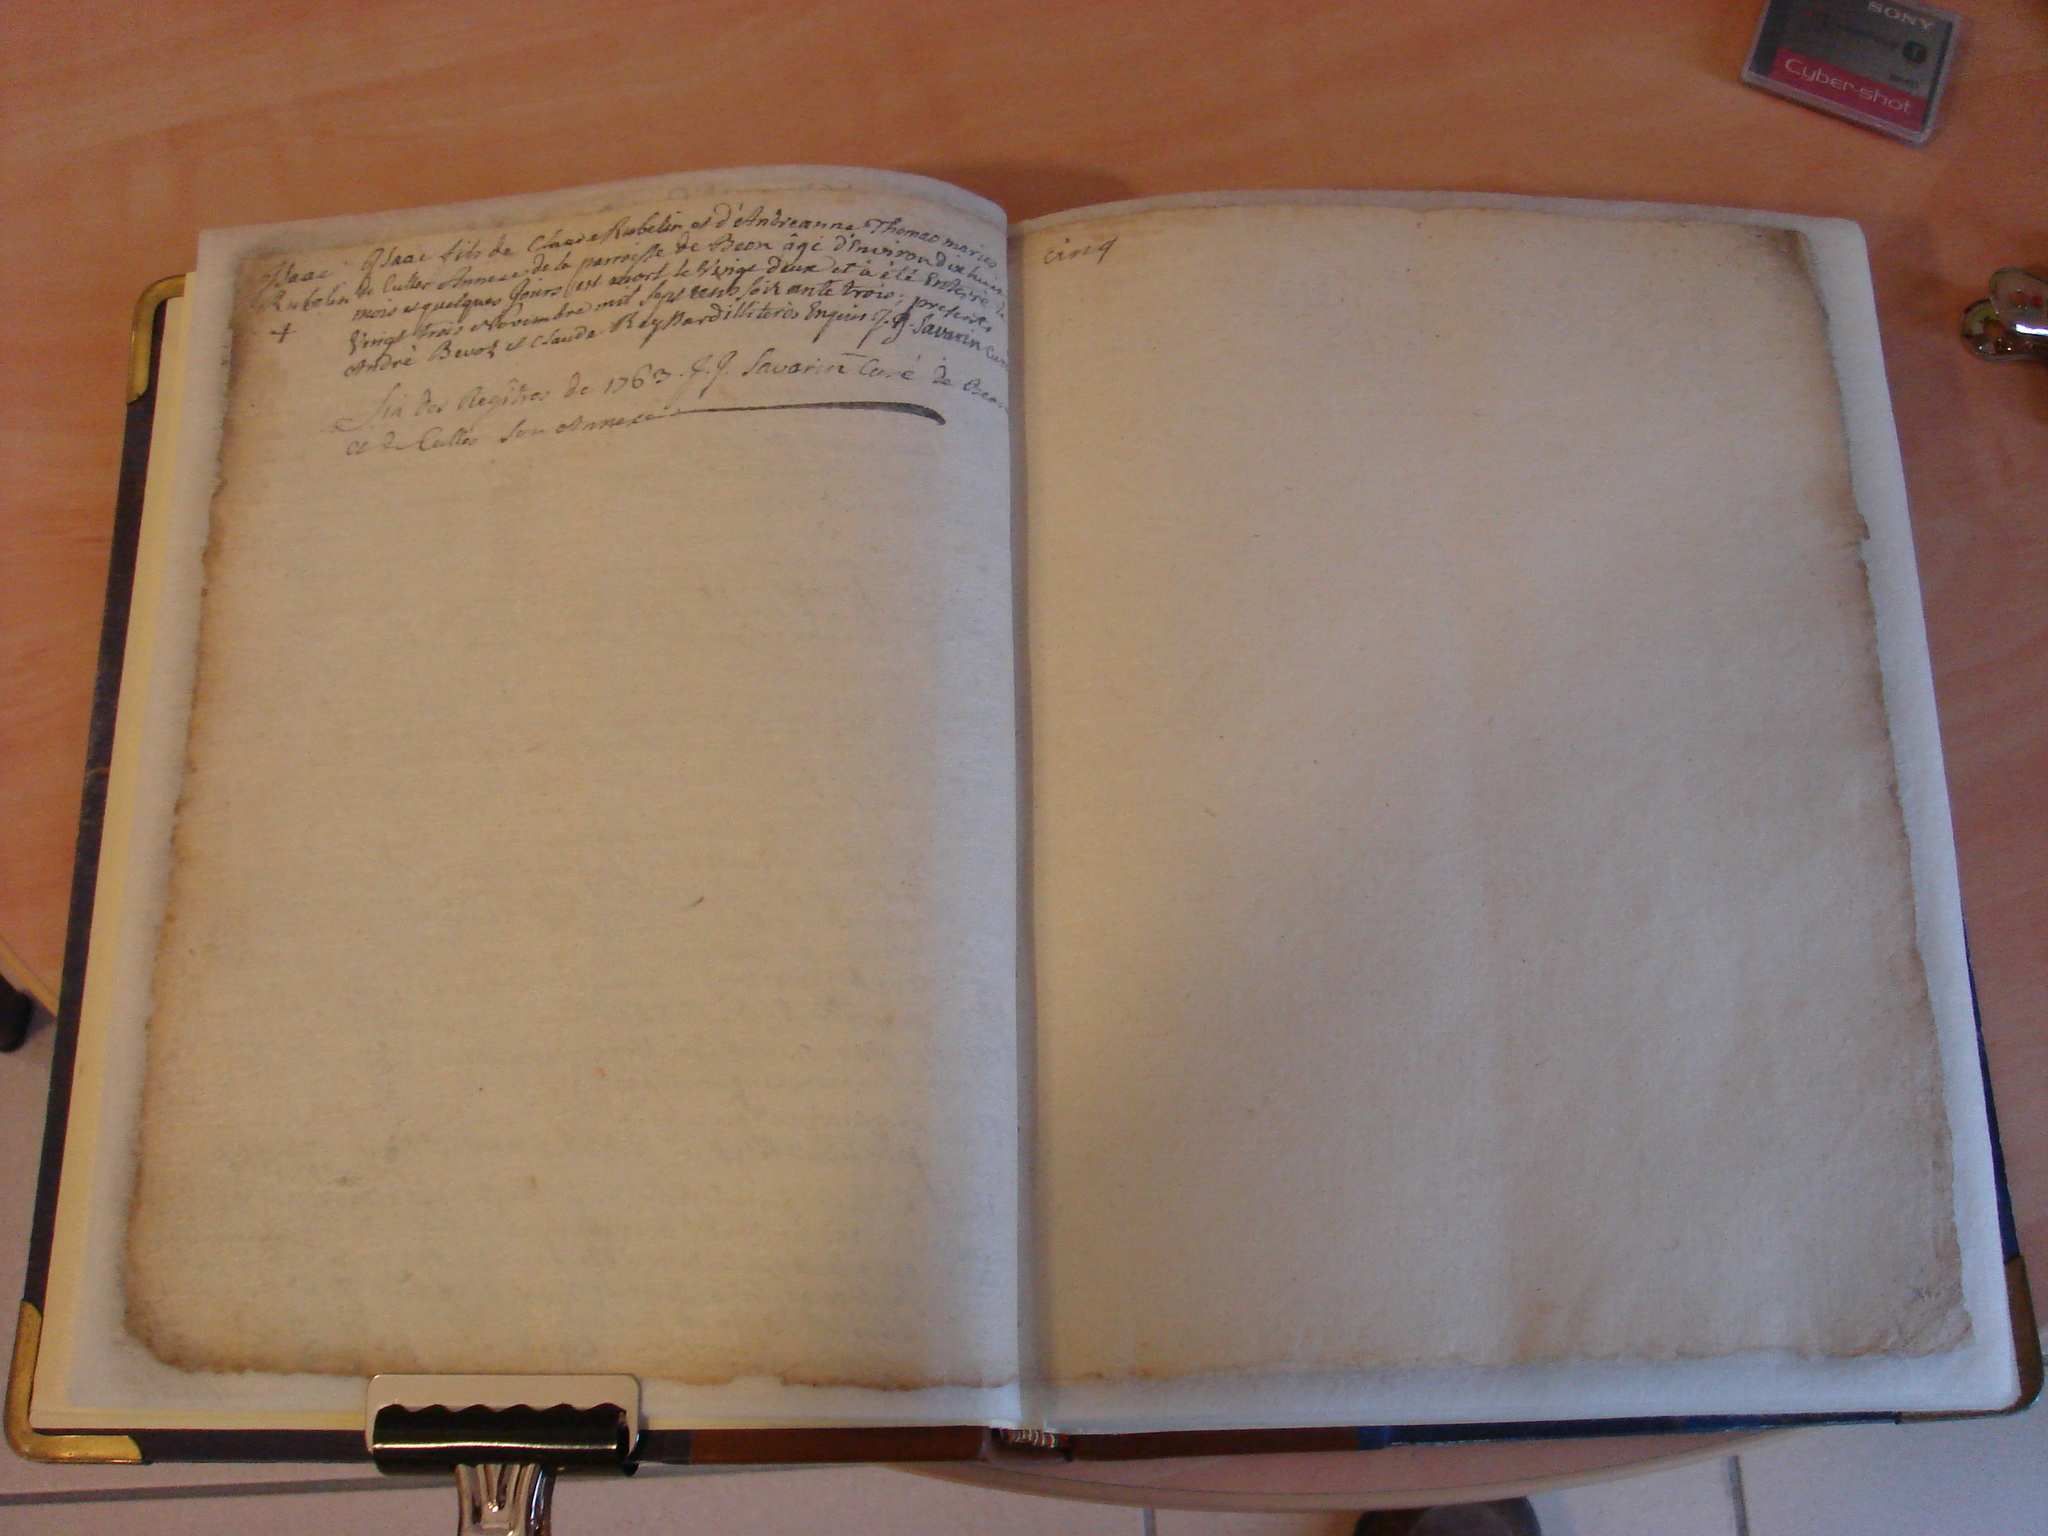 Isaac
Rubelin
+
Isaac fils de Claude Rubelin et d'Andreanne Thomas mariés
de Culles Annexe de la parroisse de Beon âgé d'Environ dix huit
mois et quelques Jours est mort le Vingt deux et à été Enterré le
Vingt trois Novembre mil sept cens soixante trois; presents
André Bevoz et Claude Rey illiterés Enquis J. J. Savarin Curé
Fin des Regîtres de 1763. J. J. Savarin Curé de Beon
et de Culles son Annexe
cinq
SONY
Cyber-shot